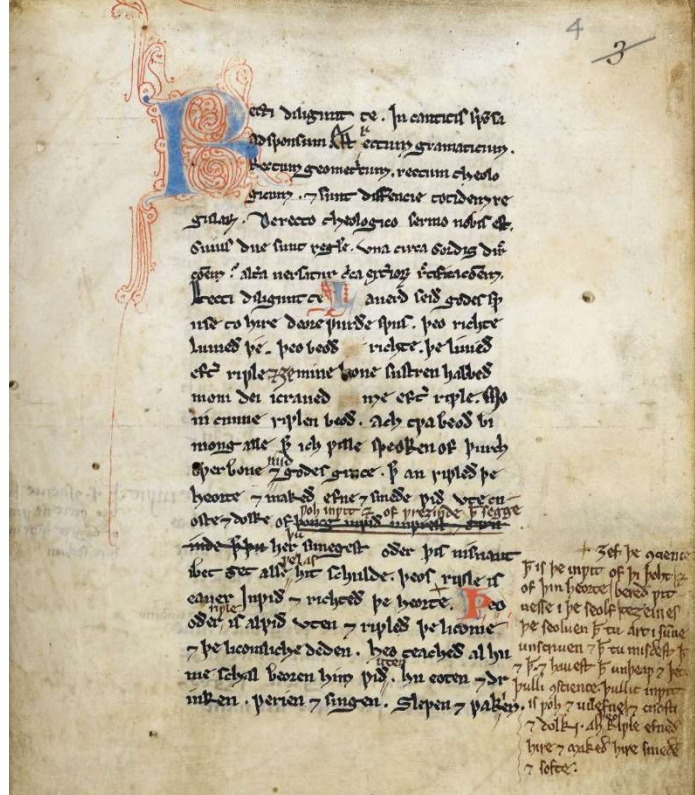 4
3
Recti diligunt te. In canticis spōsa
ad sponsum. rectum gramaticum.
Rectum geometricum, rectum theolo
gicum. ⁊ sunt differencie totidem re
gularū. De recto theologico sermo nobis est.
Cuius due sunt regule. vna circa cordis dir
altera uersatur
Recti diligunt te Lauerd seið godes sp
use to hire deore ƿurðe spus. þeo richte
luuieð þe. þeo beoð richte. þe liuieð
efter riƿle ⁊ ȝe mine leoue sustren habbeð
moni dei icraued me efter riƿle. Mo
ni cunne riƿlen beoð. Ach tƿa beoð bi
mong alle þ̄ ich ƿille speoken of þurch
ower bone ⁊ mid godes grace. þ̄ an riƿleð þe
heorte ⁊ makeð efne ⁊ smeðe wið vten cn
oste ⁊ dolke of ƿoh inƿit ⁊ of ƿreȝinde þ̄ segge
her sunegest oder þis nis naut
ibet ȝet alse ƿel as hit schulde. þeos riƿle is
eauer inƿið ⁊ richteð þe heorte. Þeo
oðer riƿle is al ƿið vten ⁊ riƿleð þe licome
⁊ þe licomliche deden. heo teacheð al hu
me schal beoren him ƿið uten. hu eoten ⁊ dr
inken. ƿerien ⁊ singen. Slepen ⁊ ƿakien.
ȝef þe
þ̄ is þe inƿit of þi þoht ⁊
of þin heorte bereð ƿit
nesse i þe seolf teȝeines
þe seoluen þ̄ tu art i sunne
unscriuen ⁊ þ̄ tu misdest þ̄
⁊ þ̄ ⁊ hauest þ̄ unþeaƿ ⁊ þet
þulli þullic inƿit
is ƿoh ⁊ unefne ⁊ cnosti
⁊ dolki. ah þeos riƿle efneð
hire ⁊ makeð hire smeðe
⁊ softe.